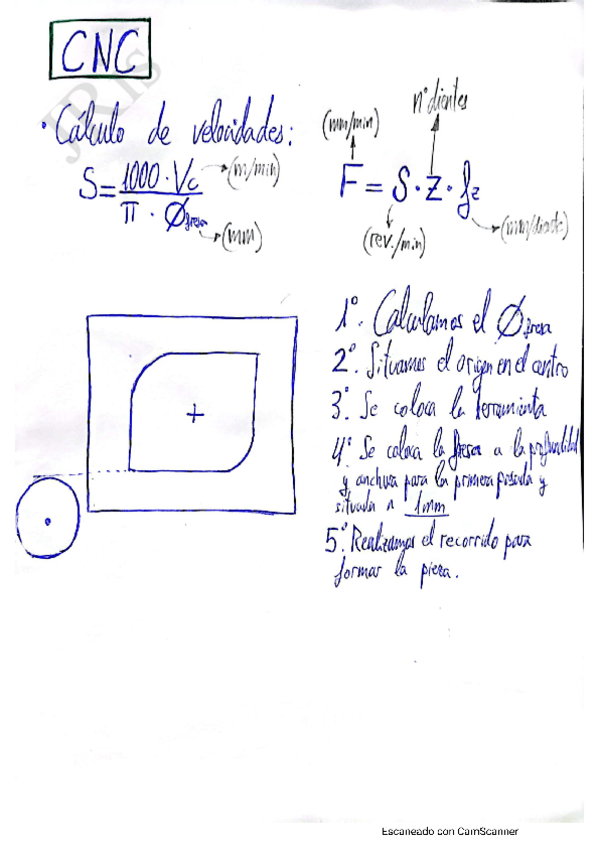 CNC
JRis
· Cálculo de velocidades:
S = 1000 · Vc / π · Øfresa
(m/min)
(mm)
F = S · Z · fz
(mm/min)
nº dientes
(rev./min)
(mm/diente)
1º. Calculamos el Øfresa
2º. Situamos el origen en el centro
3º. Se coloca la herramienta
4º Se coloca la fresa a la profundidad
y anchura para la primera pasada y
situada a 1mm
5º. Realizamos el recorrido para
formar la pieza.
Escaneado con CamScanner